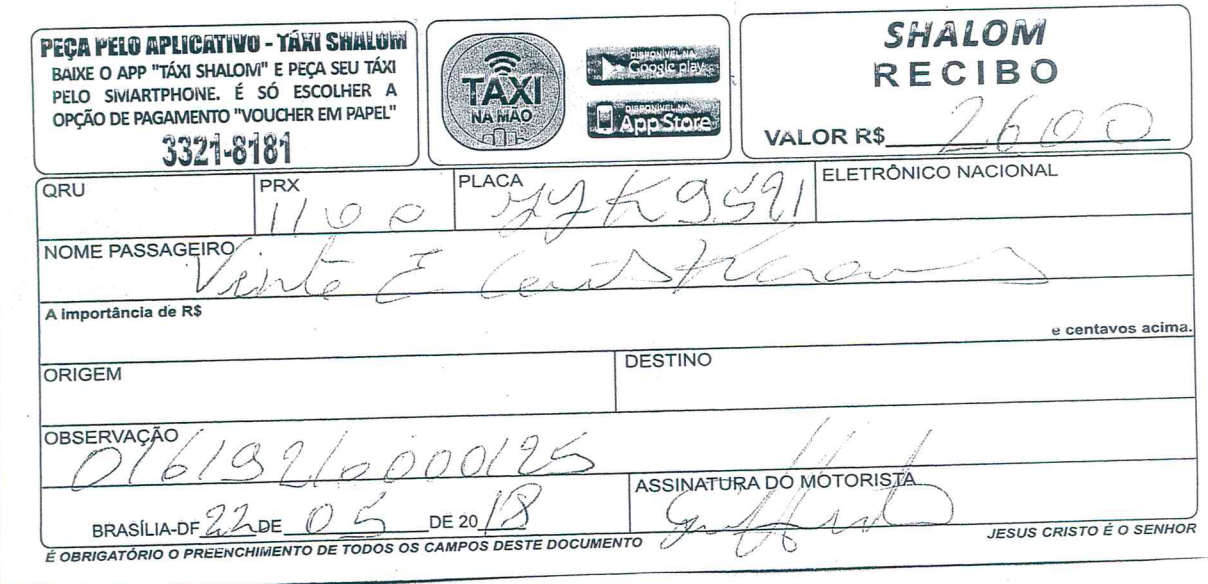 PEÇA PELO APLICATIVO - TÁXI SHALOM
BAIXE O APP "TÁXI SHALOM" E PEÇA SEU TÁXI
PELO SMARTPHONE. É SÓ ESCOLHER A
OPÇÃO DE PAGAMENTO "VOUCHER EM PAPEL"
3321-8181
TÁXI
NA MÃO
DISPONIVEL NA
Google play
DISPONIVEL NA
App Store
SHALOM
RECIBO
VALOR R$ 2600
QRU
PRX 1100
PLACA JJK9591
ELETRÔNICO NACIONAL
NOME PASSAGEIRO
Vinte E
A importância de R$
e centavos acima.
ORIGEM
DESTINO
OBSERVAÇÃO
01619210000125
ASSINATURA DO MOTORISTA
BRASÍLIA-DF 22 DE 05 DE 2018
JESUS CRISTO É O SENHOR
É OBRIGATÓRIO O PREENCHIMENTO DE TODOS OS CAMPOS DESTE DOCUMENTO